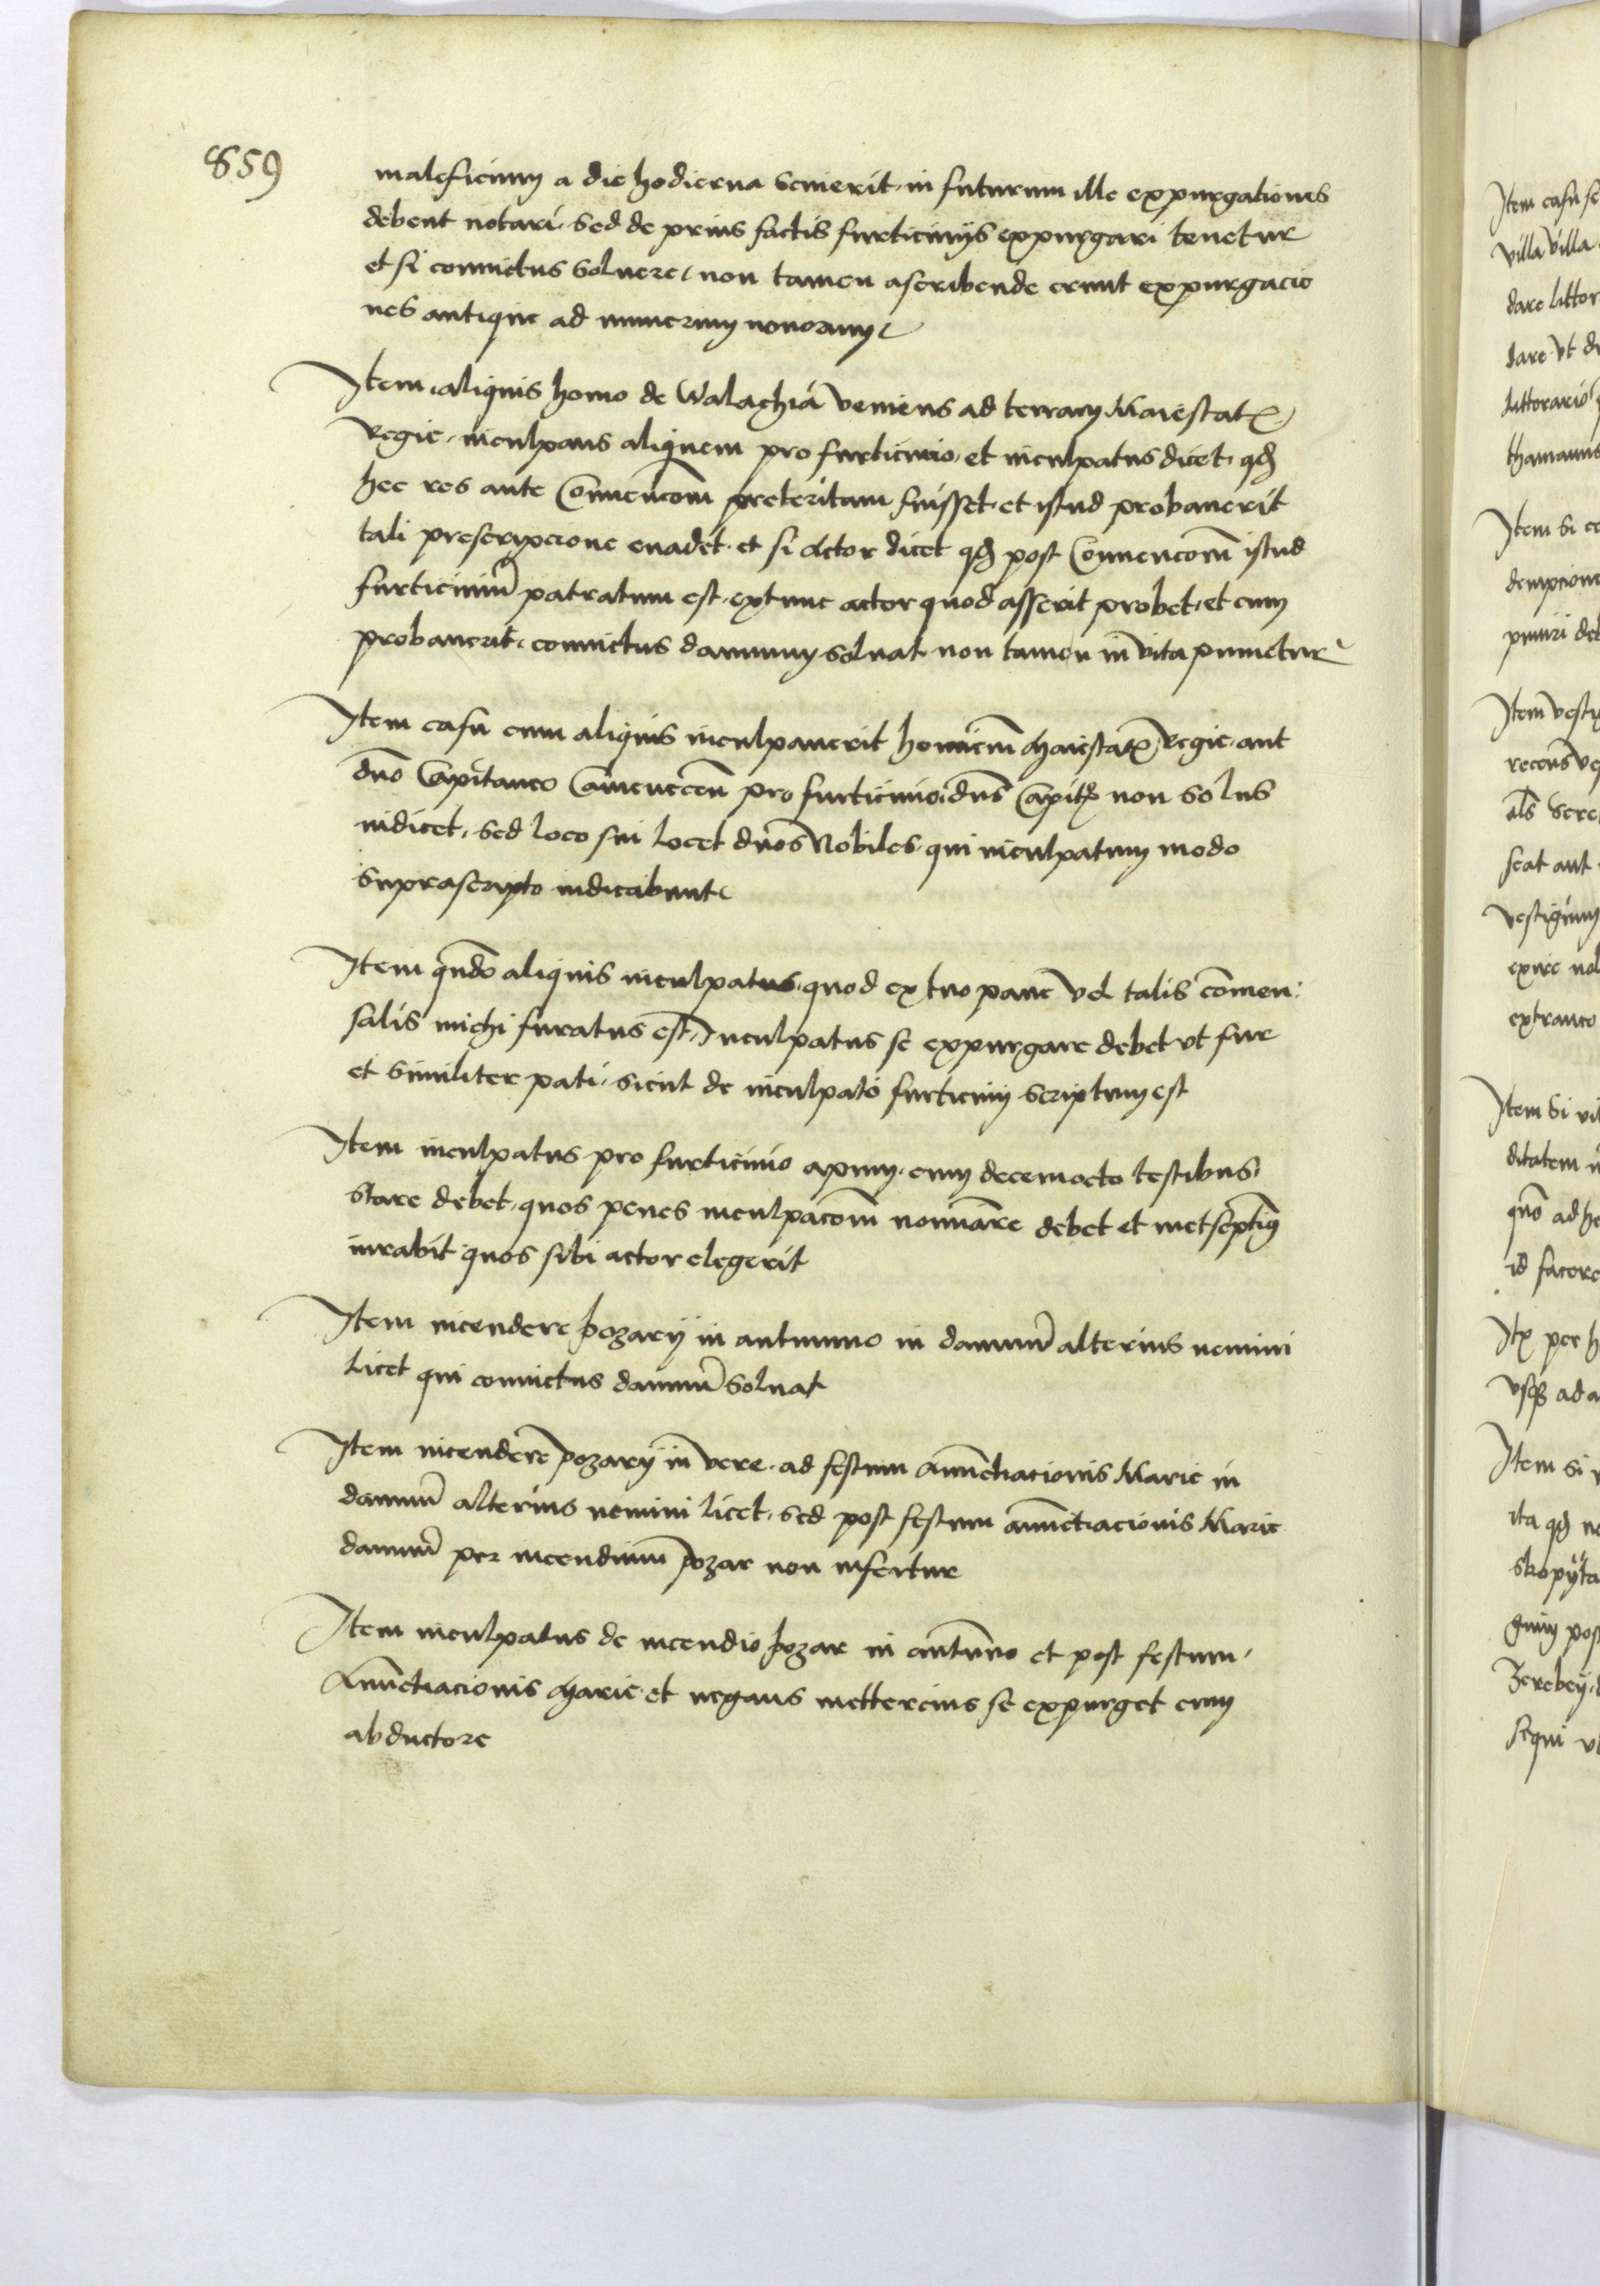 859
maleficium a die hodierna venerit in futurum ille expurgationes
debent notari. Sed de prius factis furticinijs expurgari tenetur
et si conuictus soluere, non tamen ascribende erunt expurgacio
nes antique ad numerum nouorum
Item aliquis homo de Walachia veniens ad terram Maiestat(is)
Regie, inculpans aliquem pro furticinio, et inculpatus dicet, q(uod)
hec res ante Conuencōm preteritam fuisset, et istud probauerit
tali prescripcione euadet, et si actor dicet q(uod) post Conuencōm istud
furticiniū patratum est, extunc actor quod asserit probet, et cum
probauerit, conuictus damnum soluat non tamen in vita punietur
Item casu cum aliquis inculpauerit hominem Maiestat(is) Regie, aut
dn̄o Capitaneo Camenecen̄ pro furticinio, dn̄s Capit(aneus) non solus
iudicet, sed loco sui locet duos Nobiles, qui inculpatum modo
suprascripto iudicabunt
Item qn̄do aliquis inculpatus, quod ex tuo pane vel talis cōmen
salis michi furatus est, Inculpatus se expurgare debet vt fur
et similiter pati, sicut de inculpato furticinij scriptum est
Item inculpatus pro furticinio apum, cum decemocto testibus
stare debet, quos penes inculpacōm nominare debet et metseptim(us)
iurabit quos sibi actor elegerit
Item incendere pozary in autumno in damnū alterius nemini
licet qui conuictus damnū soluat
Item incendere pozary in vere, ad festum Annūctiacionis Marie in
damnū alterius nemini licet, sed post festum annūctiacionis Marie
damnū per incendium pozar non infertur
Item inculpatus de incendio pozar in autūno et post festum
Annūctiacionis Marie, et negans mettercius se expurget cum
abductore